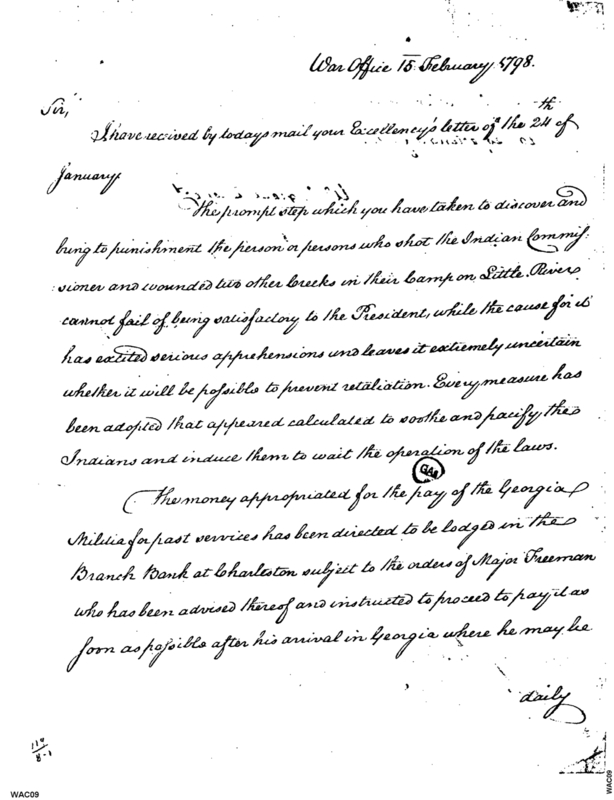 War Office 15 February 1798.
Sir,
I have received by todays mail your Excellency's letter of the 24th of
January.
The prompt step which you have taken to discover and
bring to punishment the person or persons who shot the Indian Commis-
sioner and wounded two other Creeks in their Camp on Little River
cannot fail of being satisfactory to the President, while the cause for it
has excited serious apprehensions and leaves it extremely uncertain
whether it will be possible to prevent retaliation. Every measure has
been adopted that appeared calculated to soothe and pacify the
Indians and induce them to wait the operation of the laws.
GA&
The money appropriated for the pay of the Georgia
Militia for past services has been directed to be lodged in the
Branch Bank at Charleston subject to the orders of Major Freeman
who has been advised thereof and instructed to proceed to pay it as
soon as possible after his arrival in Georgia where he may be
daily
WAC09
WAC09